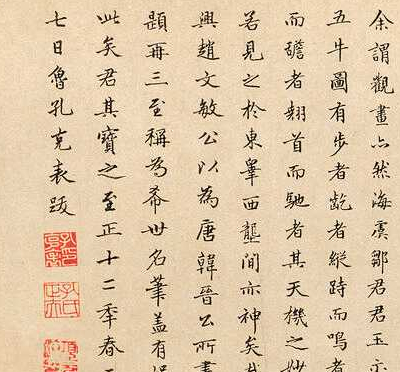 余謂觀畫亦然海虞鄒君君玉示
五牛圖有步者齕者縱跱而鳴者
而者翹首而馳者其天機之妙
若見之於東睪西壟間亦神矣哉
興趙文敏公以為唐韓晉公所畫
題再三至稱為希世名筆蓋有
此矣君其寶之至正十二季春
七日魯孔克表跋